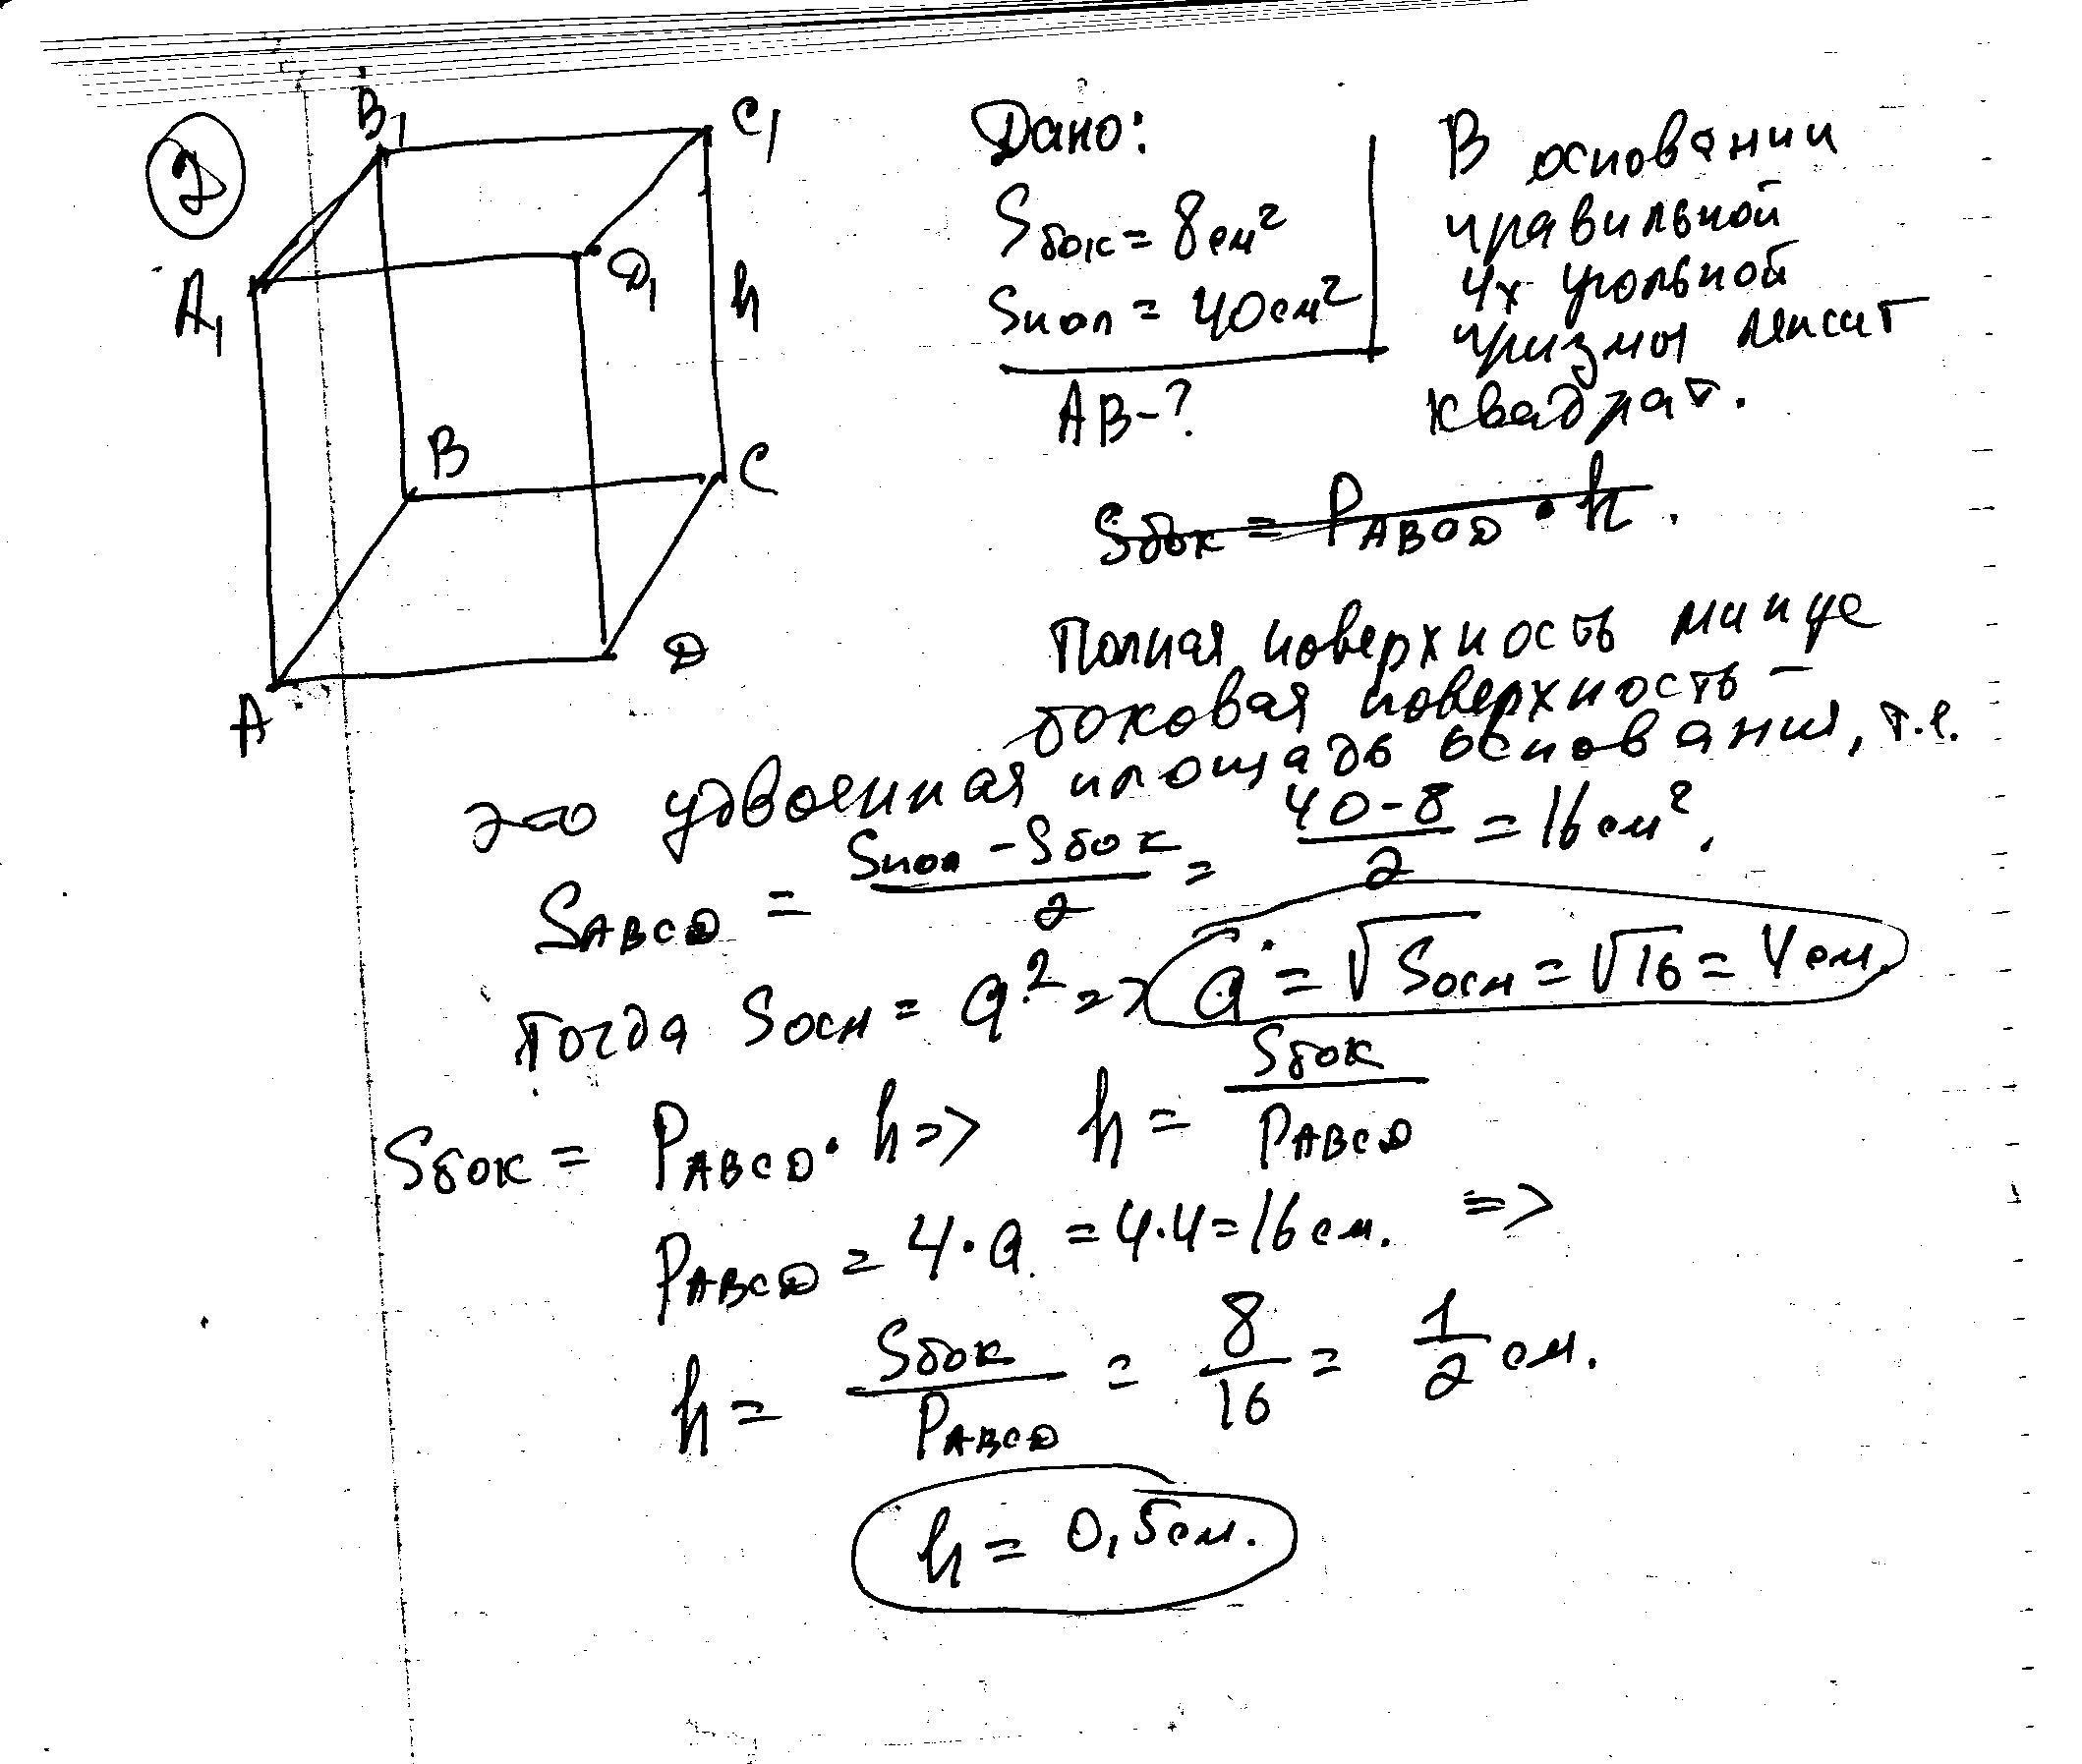 2
B₁
C₁
A₁
D₁
h
B
C
A
D
Дано:
Sбок = 8 см²
Sпол = 40 см²
AB - ?
В основании
правильной
4х угольной
призмы лежит
квадрат.
Sбок = PABCD · h.
Полная поверхность минус
боковая поверхность –
это удвоенная площадь основания, т.е.
SABCD = (Sпол - Sбок)/2 = (40-8)/2 = 16 см².
Тогда Sосн = a² => a = √Sосн = √16 = 4 см.
Sбок = PABCD · h => h = Sбок/PABCD
PABCD = 4·a = 4·4 = 16 см. =>
h = Sбок/PABCD = 8/16 = 1/2 см.
h = 0,5 см.